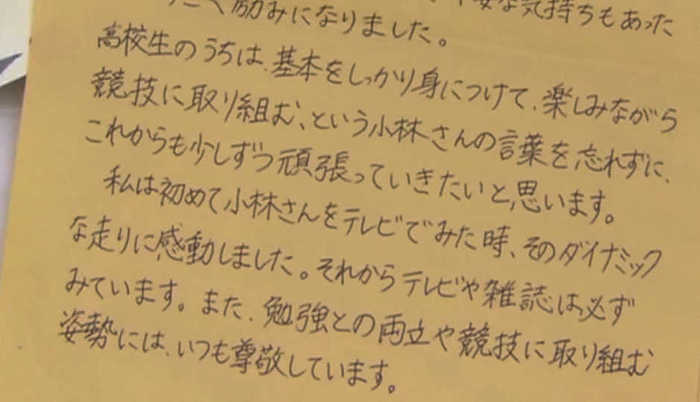 励みになりました。
な気持ちもあった
高校生のうちは、基本をしっかり身につけて、楽しみながら
競技に取り組む、という小林さんの言葉を忘れずに、
これからも少しずつ頑張っていきたいと思います。
私は初めて小林さんをテレビでみた時、そのダイナミック
な走りに感動しました。それからテレビや雑誌は必ず
みています。また、勉強との両立や競技に取り組む
姿勢には、いつも尊敬しています。